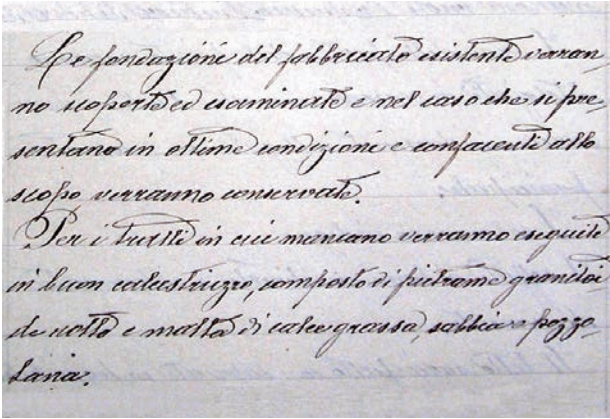 Le fondazioni del fabbricato esistente verran-
no scoperte ed esaminate e nel caso che si pre-
sentano in ottime condizioni e confacenti allo
scopo, verranno conservate.
Per i tratti in cui mancano verranno eseguite
in buon calcestruzzo, composto di pietrame granitoi-
de rotto e malta di calce grassa, sabbia e pozzo-
lana.